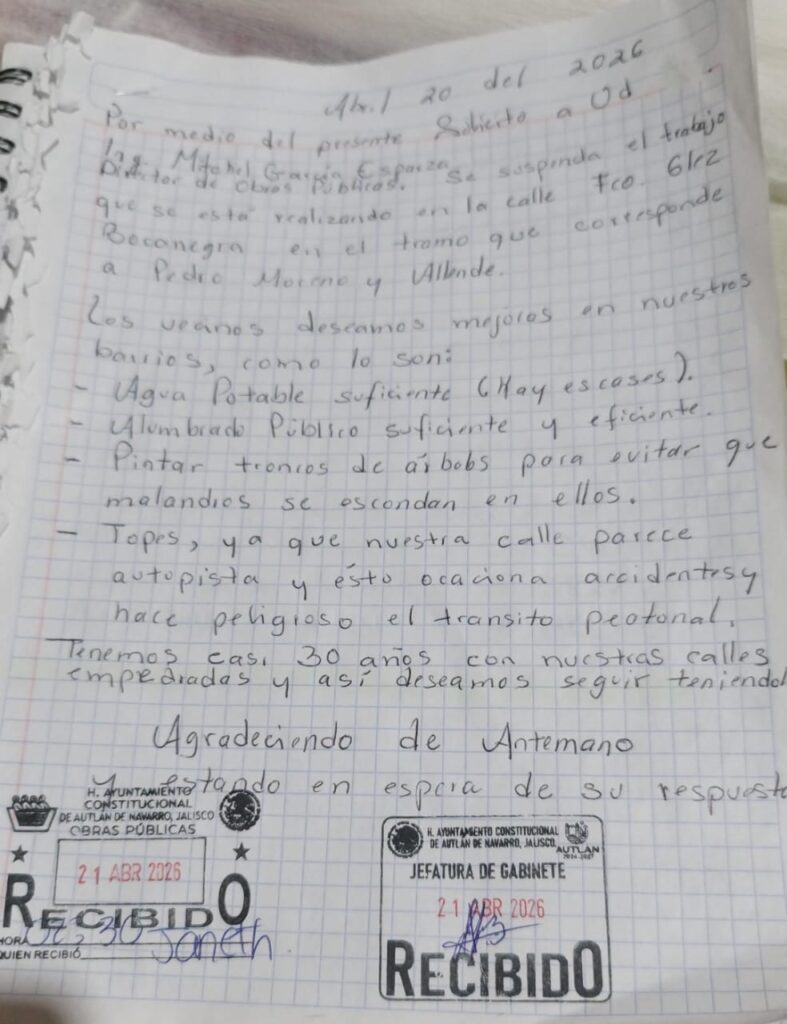 Abril 20 del 2026
Por medio del presente Solicito a Ud
Ing. Mitchel García Esparza
Director de Obras Públicas. Se suspenda el trabajo
que se está realizando en la calle Fco. Glez
Bocanegra en el tramo que corresponde
a Pedro Moreno y Allende.
Los vecinos deseamos mejoras en nuestros
barrios, como lo son:
- Agua Potable suficiente (Hay escases).
- Alumbrado Público suficiente y eficiente.
- Pintar troncos de árboles para evitar que
malandros se escondan en ellos.
- Topes, ya que nuestra calle parece
autopista y ésto ocaciona accidentes y
hace peligioso el transito peatonal.
Tenemos casi 30 años con nuestras calles
empedradas y así deseamos seguir teniendol
Agradeciendo de Antemano
Y estando en espera de su respuesta
H. AYUNTAMIENTO
CONSTITUCIONAL
DE AUTLÁN DE NAVARRO, JALISCO
OBRAS PÚBLICAS
21 ABR 2026
RECIBIDO
HORA
QUIEN RECIBIÓ Janeth
H. AYUNTAMIENTO CONSTITUCIONAL
DE AUTLÁN DE NAVARRO, JALISCO
AUTLÁN
2024-2027
JEFATURA DE GABINETE
21 ABR 2026
RECIBIDO